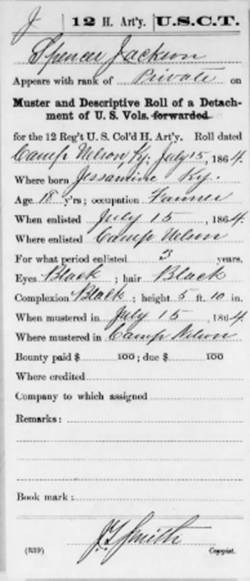 J 12 H. Art'y. U.S.C.T.
Spencer Jackson
Appears with rank of Private on
Muster and Descriptive Roll of a Detach-
ment of U. S. Vols. forwarded
for the 12 Reg't U. S. Col'd H. Art'y. Roll dated
Camp Nelson, Ky. July 15, 1864.
Where born Jessamine Ky.
Age 18 y'rs; occupation Farmer
When enlisted July 15, 1864.
Where enlisted Camp Nelson
For what period enlisted 3 years.
Eyes Black; hair Black
Complexion Black; height 5 ft. 10 in.
When mustered in July 15, 1864
Where mustered in Camp Nelson
Bounty paid $ 100; due $ 100
Where credited
Company to which assigned
Remarks:
Book mark:
(339) J. Smith Copyist.